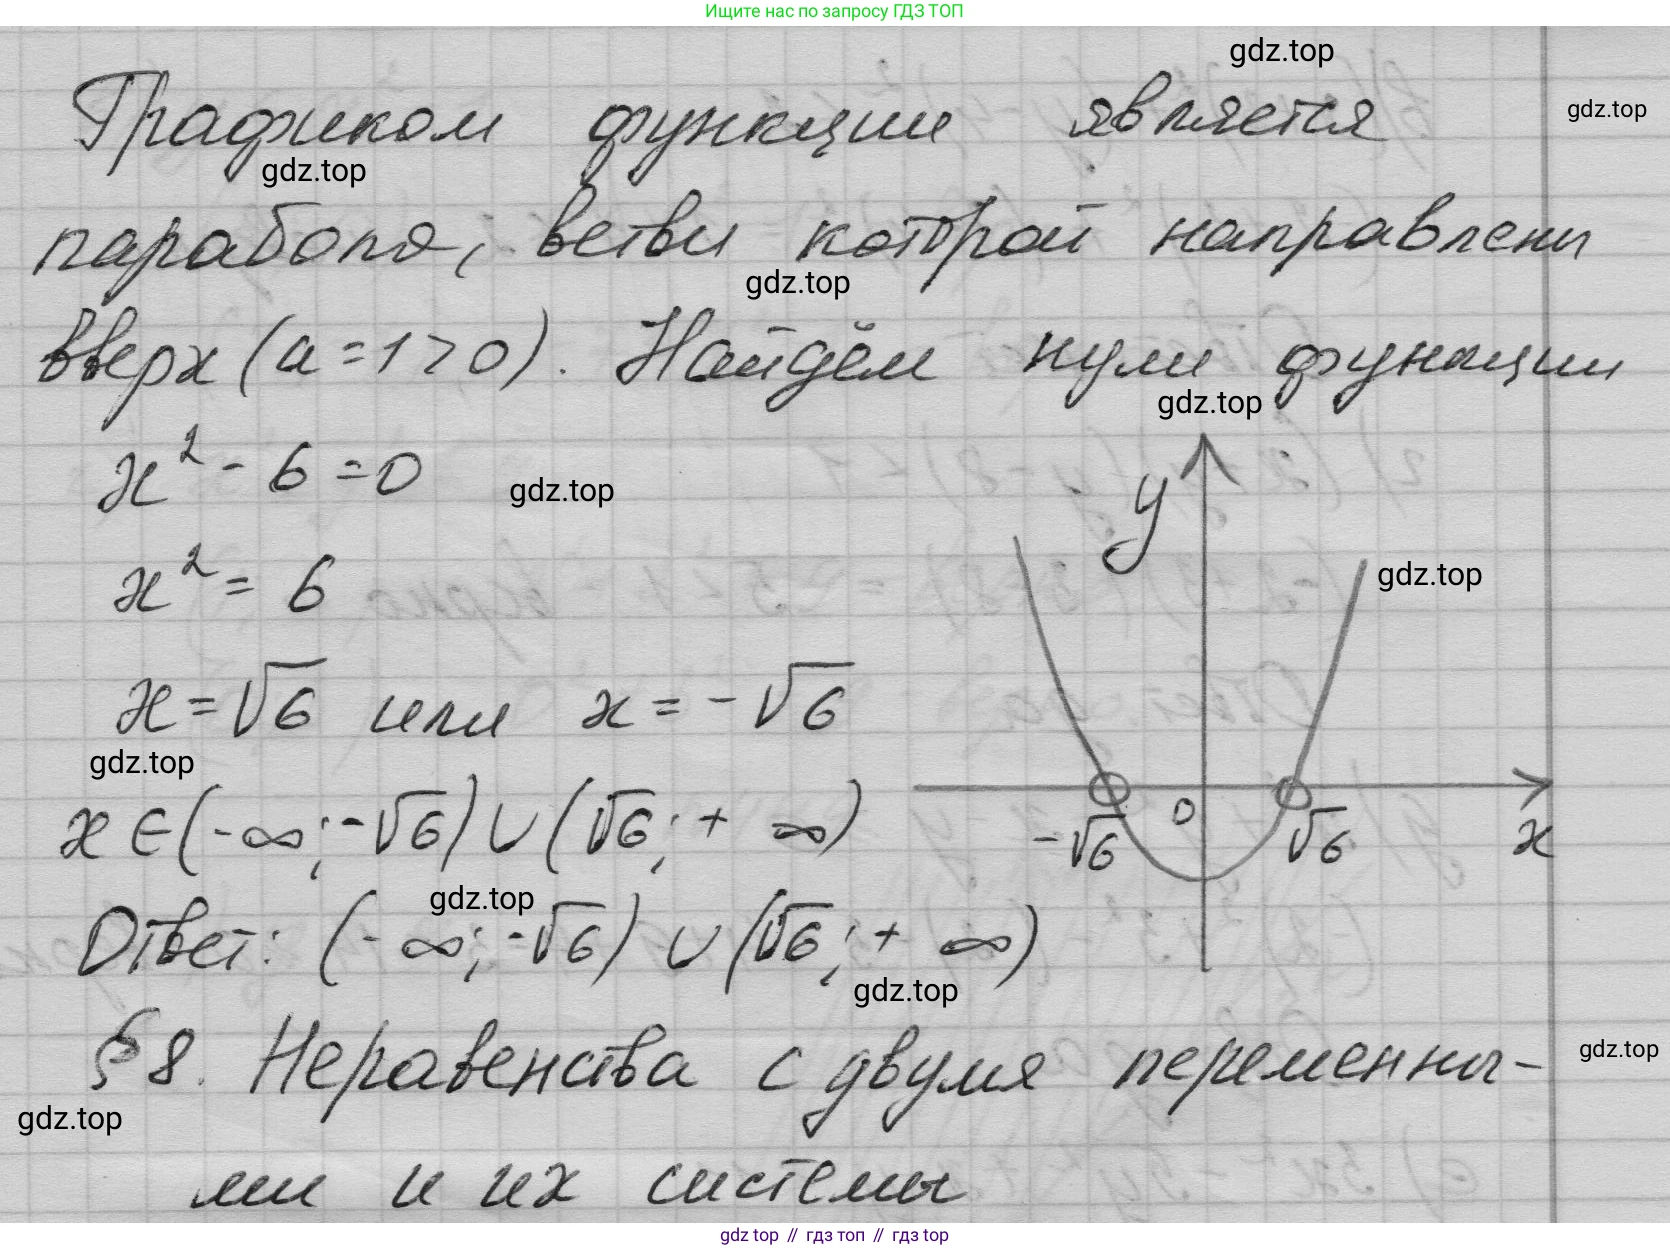 Ищите нас по запросу ГДЗ ТОП
gdz.top
gdz.top
Графиком функции является
gdz.top
парабола, ветви которой направлены
gdz.top
вверх (a = 1 > 0). Найдём нули функции
gdz.top
x² - 6 = 0
gdz.top
y
gdz.top
x² = 6
x = √6 или x = -√6
gdz.top
x ∈ (-∞; -√6) ∪ (√6; + ∞)
-√6 0 √6 x
gdz.top
Ответ: (-∞; -√6) ∪ (√6; + ∞)
gdz.top
§ 8. Неравенства с двумя переменны-
gdz.top
gdz.top
ми и их системы
gdz top // гдз топ // gdz top